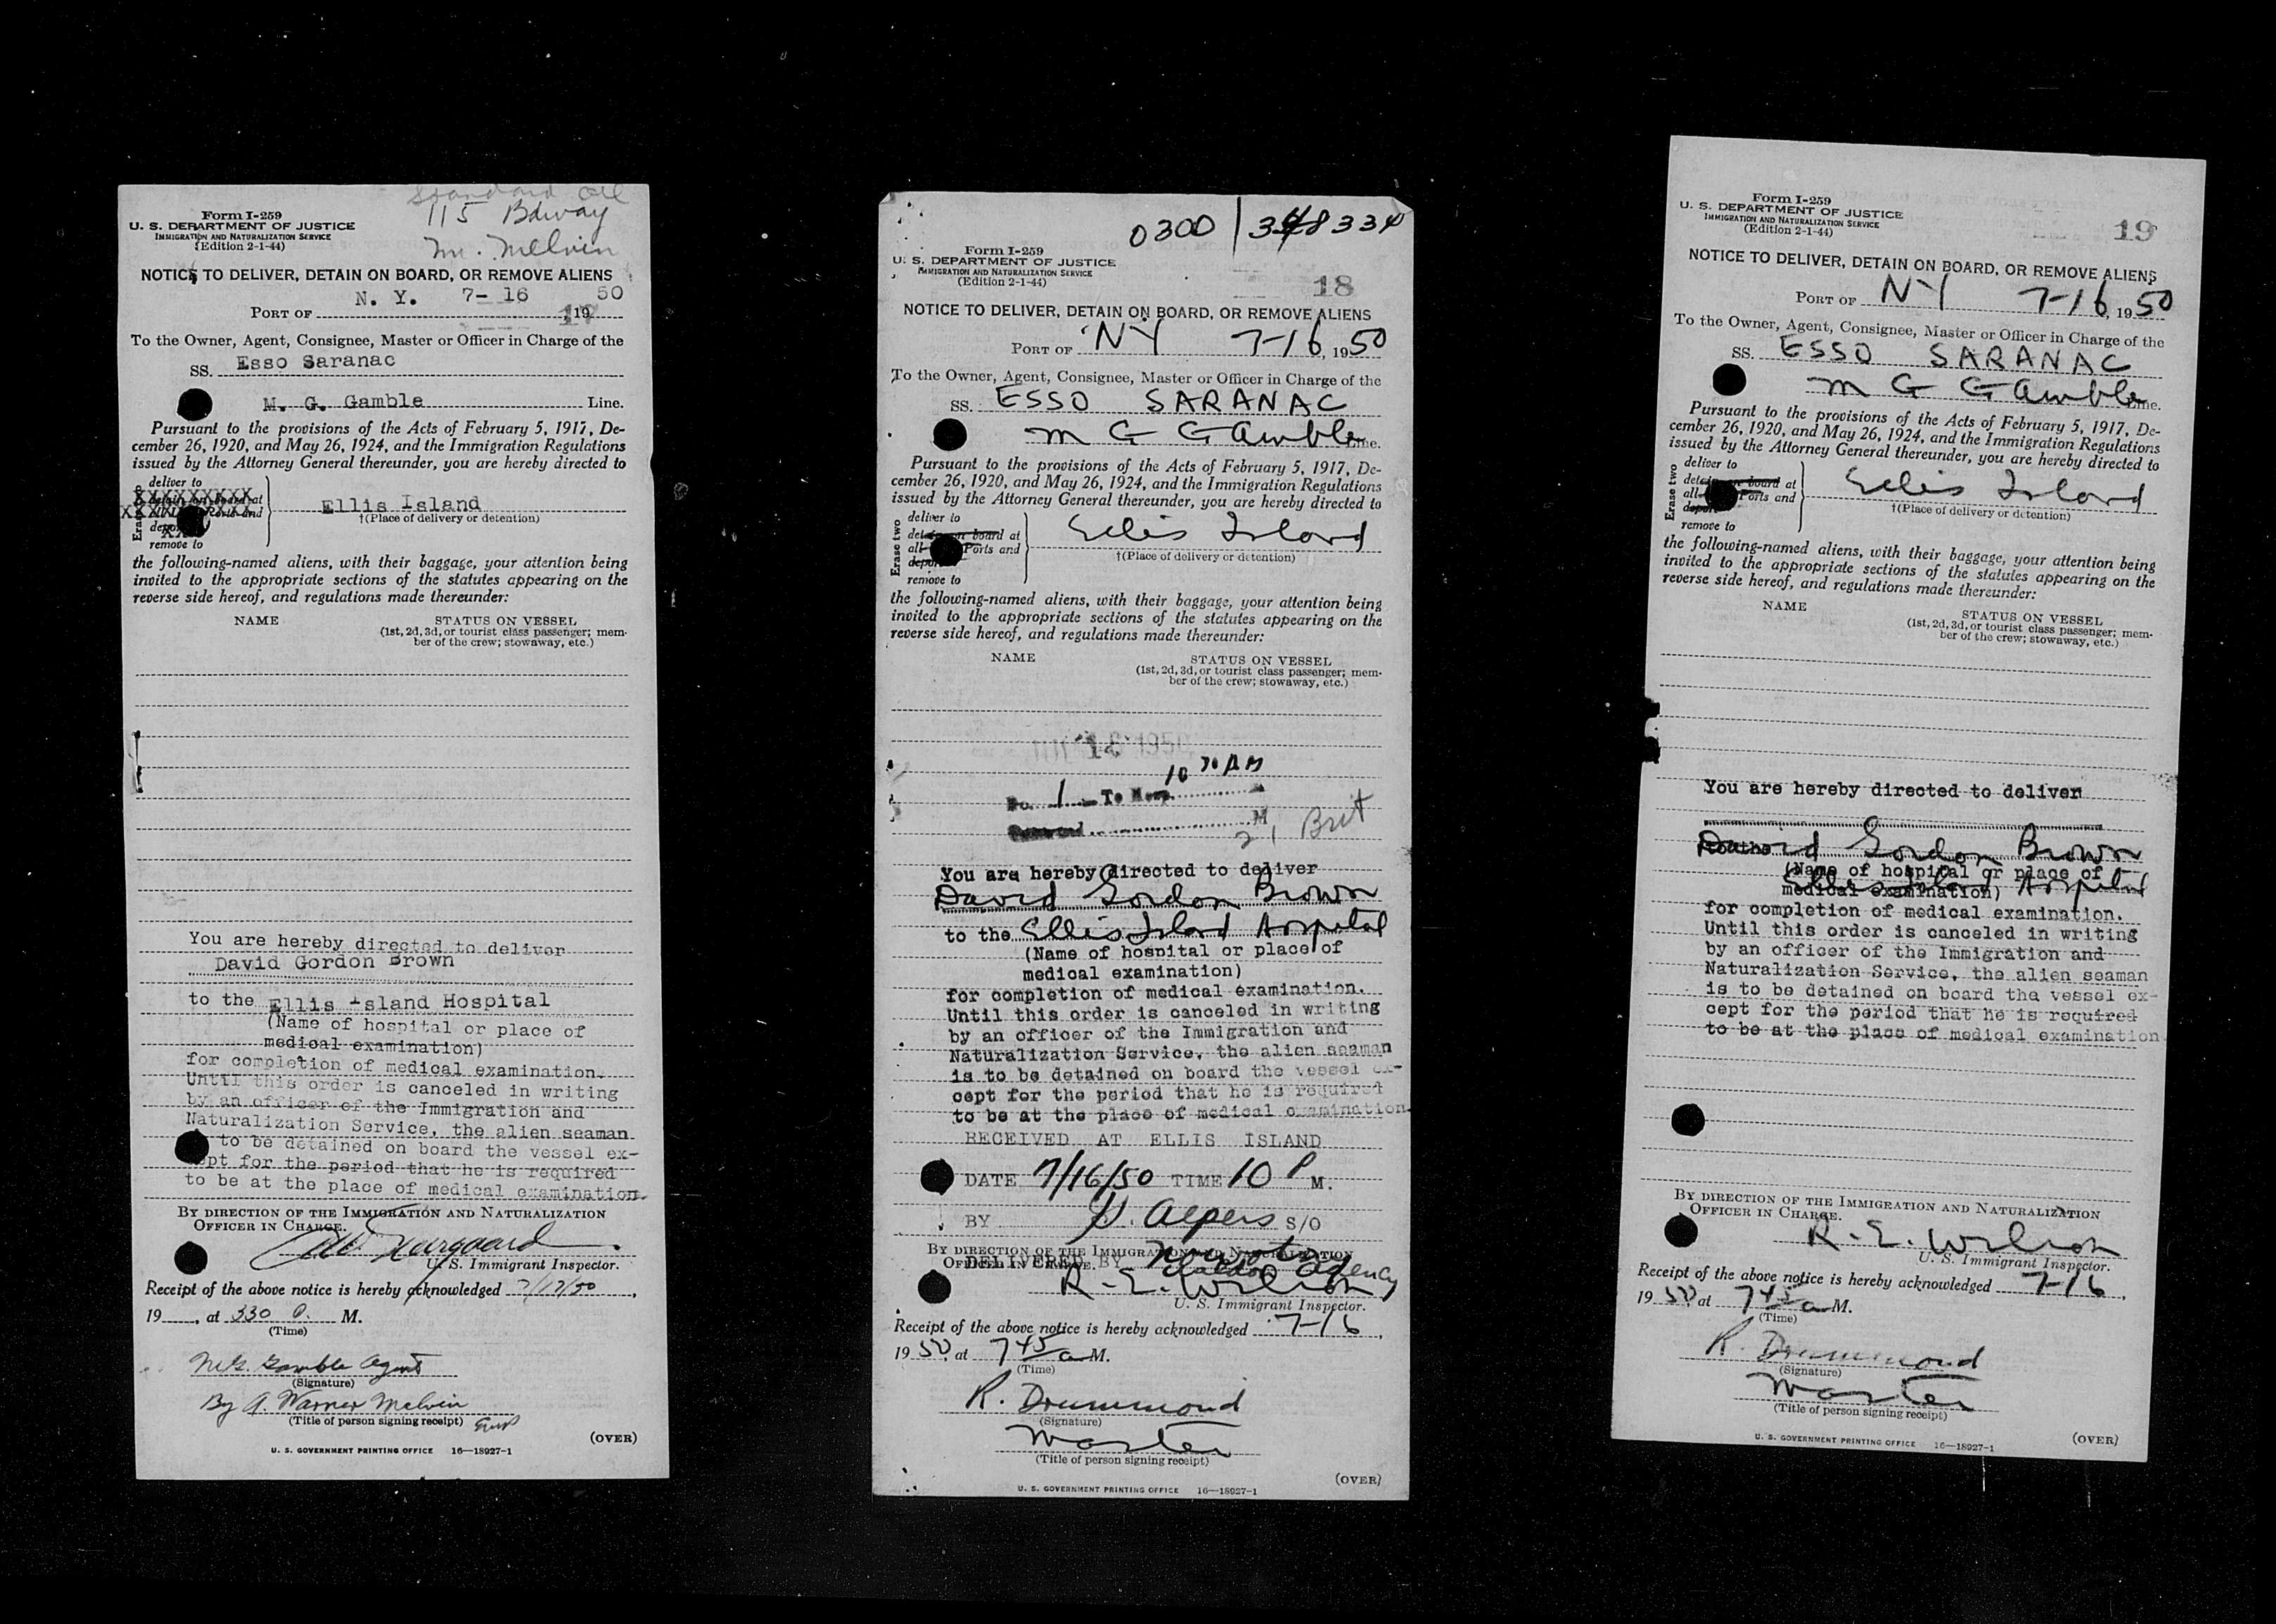 Standard Oil
115 Bdway
Mr. Melvin
Form I-259
U. S. DEPARTMENT OF JUSTICE
IMMIGRATION AND NATURALIZATION SERVICE
(Edition 2-1-44)
NOTICE TO DELIVER, DETAIN ON BOARD, OR REMOVE ALIENS
PORT OF N. Y. 7- 16 , 19 50
17
To the Owner, Agent, Consignee, Master or Officer in Charge of the
SS. Esso Saranac
M. G. Gamble Line.
Pursuant to the provisions of the Acts of February 5, 1917, De-
cember 26, 1920, and May 26, 1924, and the Immigration Regulations
issued by the Attorney General thereunder, you are hereby directed to
deliver to
detain on board at
Ports and
remove to
Ellis Island
†(Place of delivery or detention)
the following-named aliens, with their baggage, your attention being
invited to the appropriate sections of the statutes appearing on the
reverse side hereof, and regulations made thereunder:
NAME STATUS ON VESSEL
(1st, 2d, 3d, or tourist class passenger; mem-
ber of the crew; stowaway, etc.)
You are hereby directed to deliver
David Gordon Brown
to the Ellis Island Hospital
(Name of hospital or place of
medical examination)
for completion of medical examination.
Until this order is canceled in writing
by an officer of the Immigration and
Naturalization Service, the alien seaman
to be detained on board the vessel ex-
cept for the period that he is required
to be at the place of medical examination.
BY DIRECTION OF THE IMMIGRATION AND NATURALIZATION
OFFICER IN CHARGE.
U. S. Immigrant Inspector.
Receipt of the above notice is hereby acknowledged 7/17/50 ,
19 , at 330 P. M.
(Time)
M.G. Gamble Agent
(Signature)
By A. Warner Melvin
(Title of person signing receipt)
(OVER)
U. S. GOVERNMENT PRINTING OFFICE 16—18927-1
0300 | 348334
Form I-259
U. S. DEPARTMENT OF JUSTICE
IMMIGRATION AND NATURALIZATION SERVICE
(Edition 2-1-44)
18
NOTICE TO DELIVER, DETAIN ON BOARD, OR REMOVE ALIENS
PORT OF NY 7-16, 1950
To the Owner, Agent, Consignee, Master or Officer in Charge of the
SS. ESSO SARANAC
M G GAmble Line.
Pursuant to the provisions of the Acts of February 5, 1917, De-
cember 26, 1920, and May 26, 1924, and the Immigration Regulations
issued by the Attorney General thereunder, you are hereby directed to
Erase two
deliver to
detain on board at
all Ports and
remove to
Ellis Island
†(Place of delivery or detention)
the following-named aliens, with their baggage, your attention being
invited to the appropriate sections of the statutes appearing on the
reverse side hereof, and regulations made thereunder:
NAME STATUS ON VESSEL
(1st, 2d, 3d, or tourist class passenger; mem-
ber of the crew; stowaway, etc.)
1950
10 30 AM
1 To Hosp.
M
21 Brit
You are hereby directed to deliver
David Gordon Brown
to the Ellis Island Hospital
(Name of hospital or place of
medical examination)
for completion of medical examination.
Until this order is canceled in writing
by an officer of the Immigration and
Naturalization Service, the alien seaman
is to be detained on board the vessel ex-
cept for the period that he is required
to be at the place of medical examination.
RECEIVED AT ELLIS ISLAND
DATE 7/16/50 TIME 10 P M.
BY Alpers S/O
BY DIRECTION OF THE IMMIGRATION AND NATURALIZATION
OFFICER IN CHARGE.
DELIVERED BY Agency
R. E. Wilson
U. S. Immigrant Inspector.
Receipt of the above notice is hereby acknowledged 7-16 ,
19 50, at 7 45 a M.
(Time)
R. Drummond
(Signature)
Master
(Title of person signing receipt)
(OVER)
U. S. GOVERNMENT PRINTING OFFICE 16—18927-1
Form I-259
U. S. DEPARTMENT OF JUSTICE
IMMIGRATION AND NATURALIZATION SERVICE
(Edition 2-1-44)
19
NOTICE TO DELIVER, DETAIN ON BOARD, OR REMOVE ALIENS
PORT OF NY 7-16, 1950
To the Owner, Agent, Consignee, Master or Officer in Charge of the
SS. ESSO SARANAC
M G GAmble Line.
Pursuant to the provisions of the Acts of February 5, 1917, De-
cember 26, 1920, and May 26, 1924, and the Immigration Regulations
issued by the Attorney General thereunder, you are hereby directed to
Erase two
deliver to
detain on board at
all Ports and
remove to
Ellis Island
†(Place of delivery or detention)
the following-named aliens, with their baggage, your attention being
invited to the appropriate sections of the statutes appearing on the
reverse side hereof, and regulations made thereunder:
NAME STATUS ON VESSEL
(1st, 2d, 3d, or tourist class passenger; mem-
ber of the crew; stowaway, etc.)
You are hereby directed to deliver
David Gordon Brown
(Name of hospital or place of
Ellis Island Hospital
medical examination)
for completion of medical examination.
Until this order is canceled in writing
by an officer of the Immigration and
Naturalization Service, the alien seaman
is to be detained on board the vessel ex-
cept for the period that he is required
to be at the place of medical examination
BY DIRECTION OF THE IMMIGRATION AND NATURALIZATION
OFFICER IN CHARGE.
R. E. Wilson
U. S. Immigrant Inspector.
Receipt of the above notice is hereby acknowledged 7-16 ,
19 50, at 7 45 a M.
(Time)
R. Drummond
(Signature)
Master
(Title of person signing receipt)
(OVER)
U. S. GOVERNMENT PRINTING OFFICE 16—18927-1